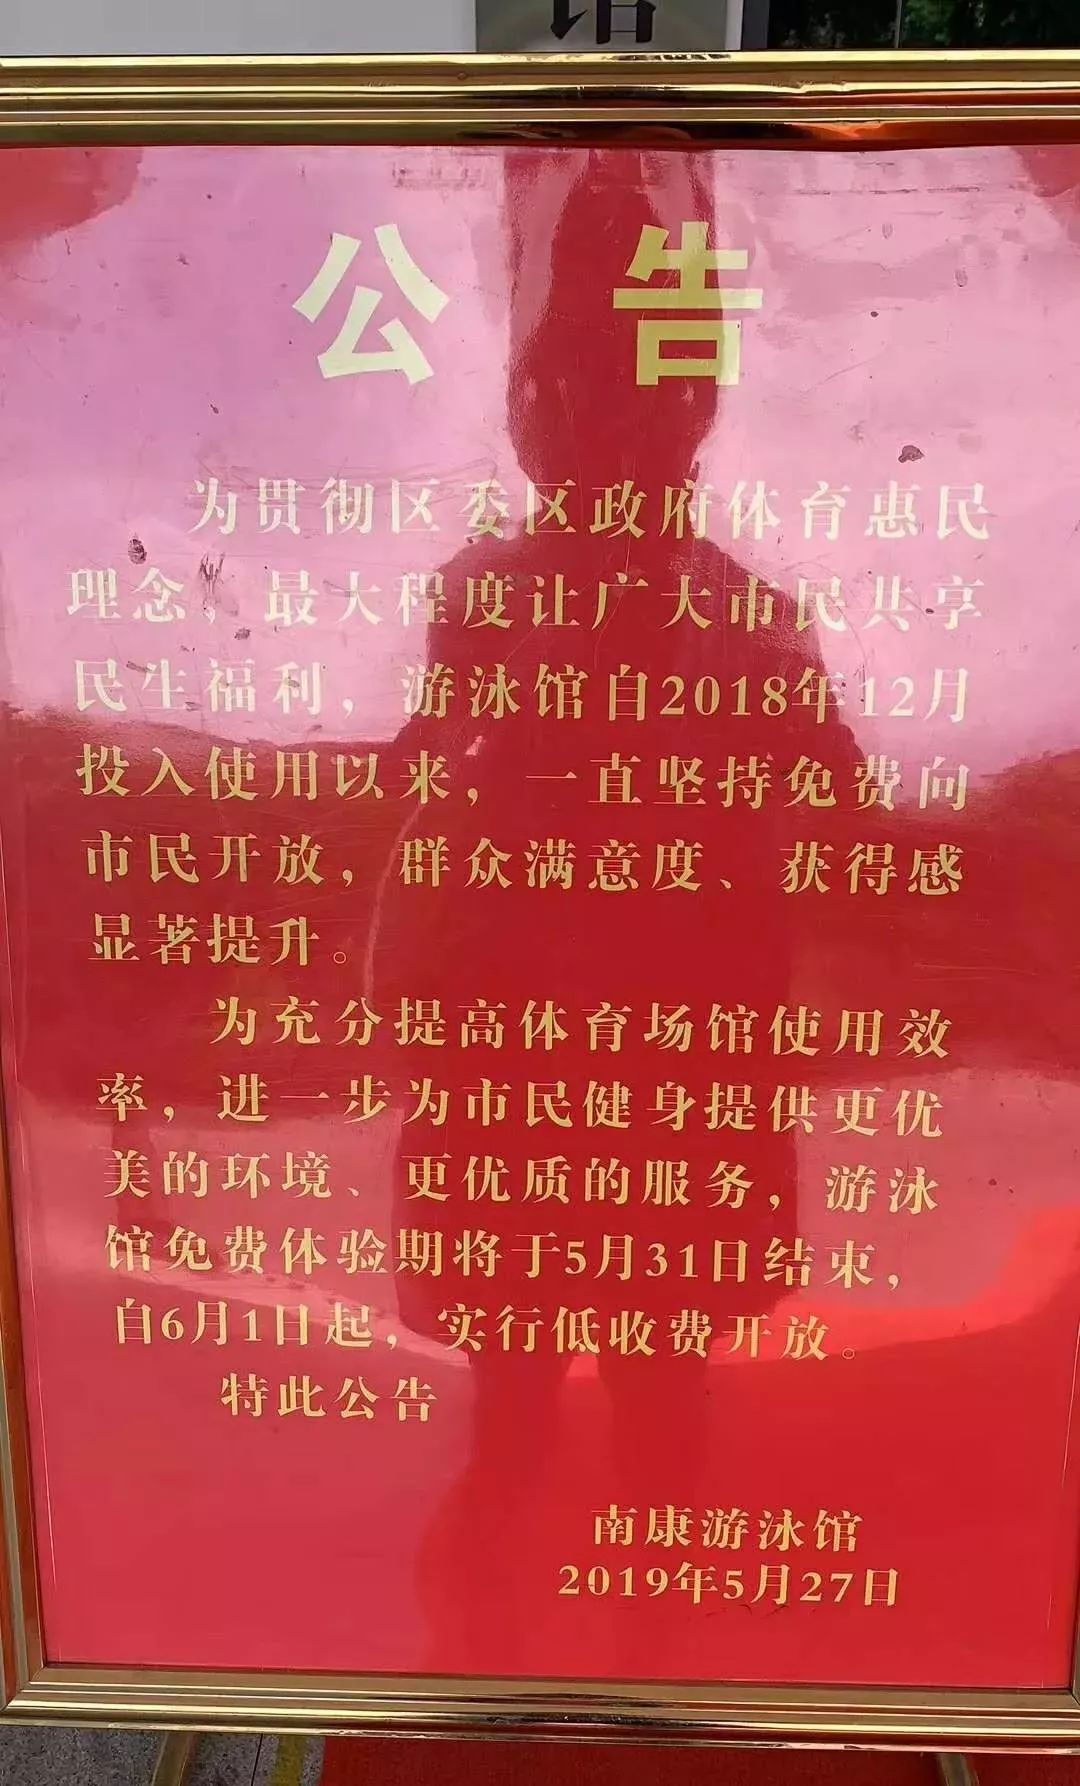 馆
公告
为贯彻区委区政府体育惠民
理念，最大程度让广大市民共享
民生福利，游泳馆自2018年12月
投入使用以来，一直坚持免费向
市民开放，群众满意度、获得感
显著提升。
为充分提高体育场馆使用效
率，进一步为市民健身提供更优
美的环境、更优质的服务，游泳
馆免费体验期将于5月31日结束，
自6月1日起，实行低收费开放。
特此公告
南康游泳馆
2019年5月27日